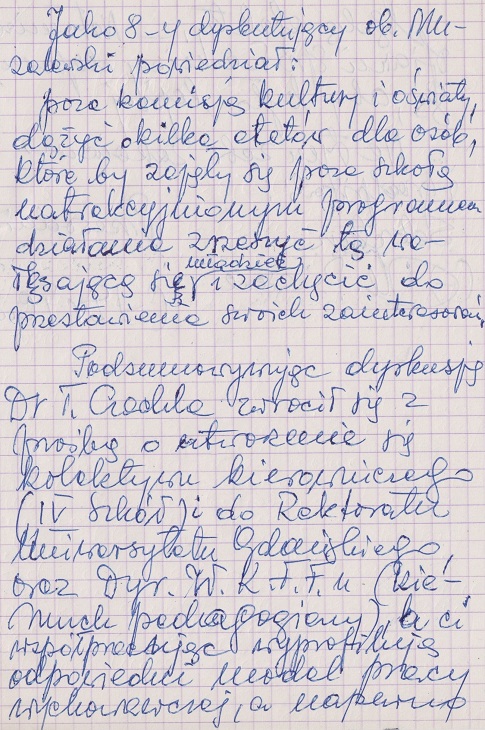 Jako 8-y dyskutujący ob. Mu-
zalewski powiedział:
poza komisją kultury i oświaty,
dążyć o kilka etatów dla osób,
które by zajęły się poza szkołą
uatrakcyjnionym programem
działania zrzeszyć tą wa-
łęsającą się młodzież i zachęcić do
przestawienia swoich zainteresowań.
Podsumowywując dyskusję
Dr T. zwrócił się z
prośbą o się
kolektywu kierowniczego
(IV Szkół) i do Rektoratu
Uniwersytetu Gdańskiego,
oraz Dyr. W. K. F. F. u (kie-
runek pedagogiczny), a ci
współpracując wyprofilują
odpowiedni model pracy
wychowawczej, a napewno